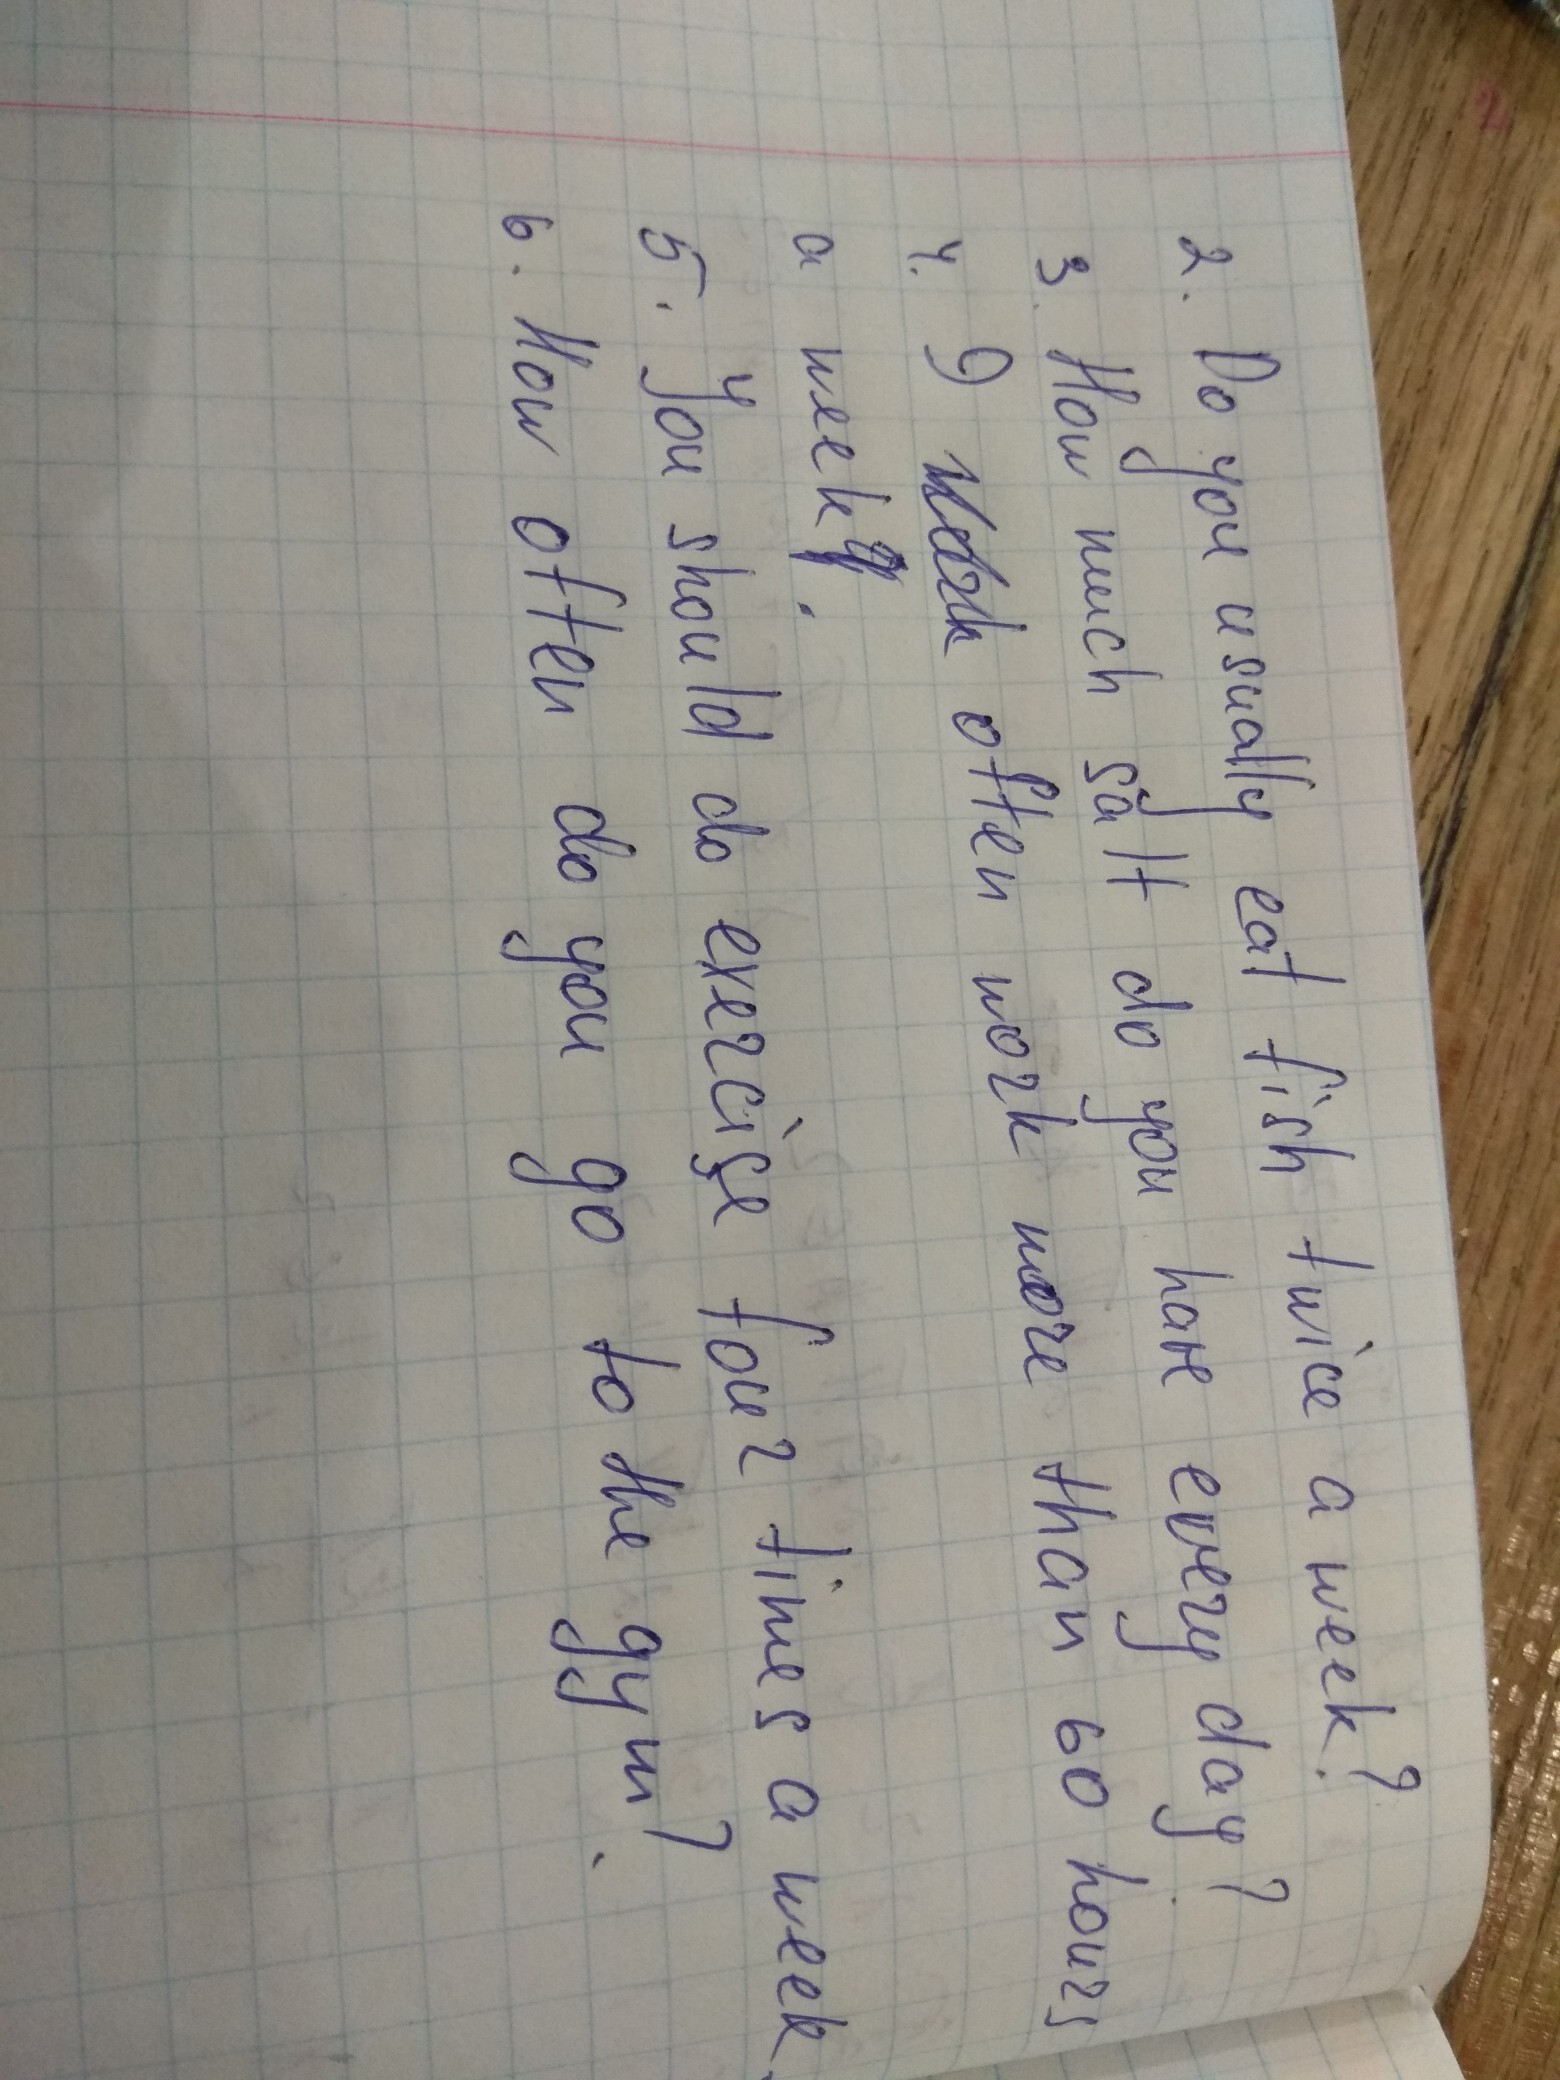 2. Do you usually eat fish twice a week?
3. How much salt do you have every day?
4. I often work more than 60 hours
a week.
5. You should do exercise four times a week.
6. How often do you go to the gym?